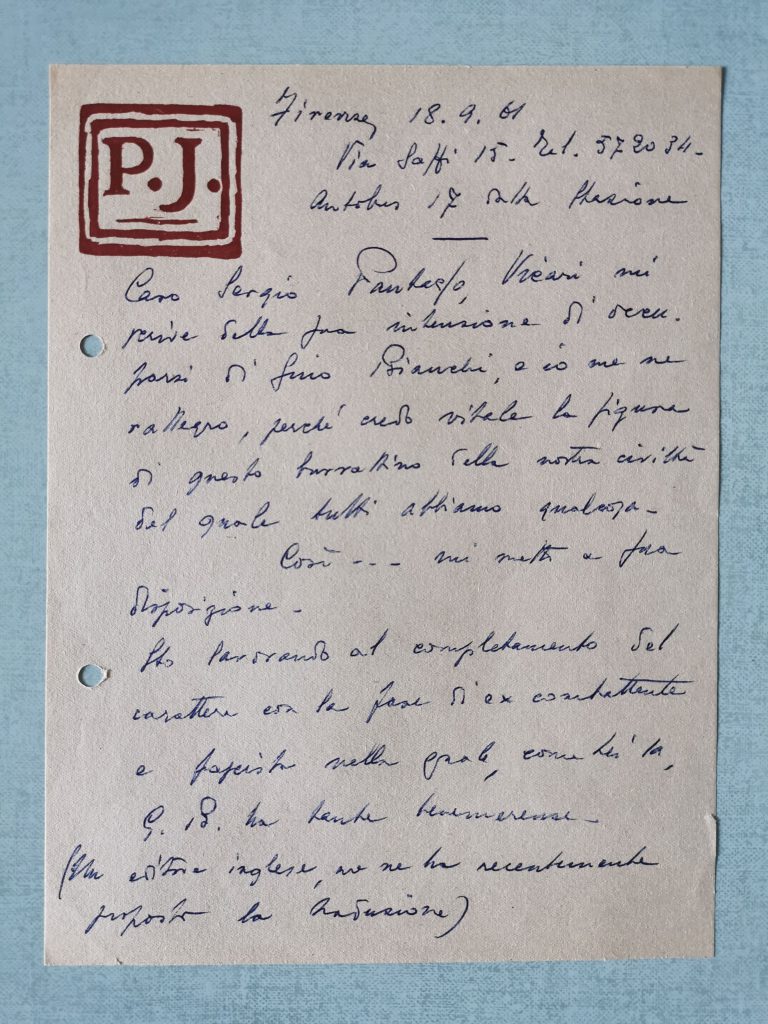 P.J.
Firenze, 18. 9. 61
Via Saffi 15. Tel. 572034-
Autobus 17 dalla Stazione
Caro Sergio Pautasso, Vicari mi
scrive della sua intenzione di occu-
parsi di Gino Bianchi, e io me ne
rallegro, perché credo vitale la figura
di questo burrattino della nostra civiltà
del quale tutti abbiamo qualcosa-
Così --- mi metto a sua
disposizione-
Sto lavorando al completamento del
carattere con la fase di ex combattente
e fascista nella quale, come Lei sa,
G. B. ha tante benemerenze-
(Un editore inglese, me ne ha recentemente
proposto la traduzione)